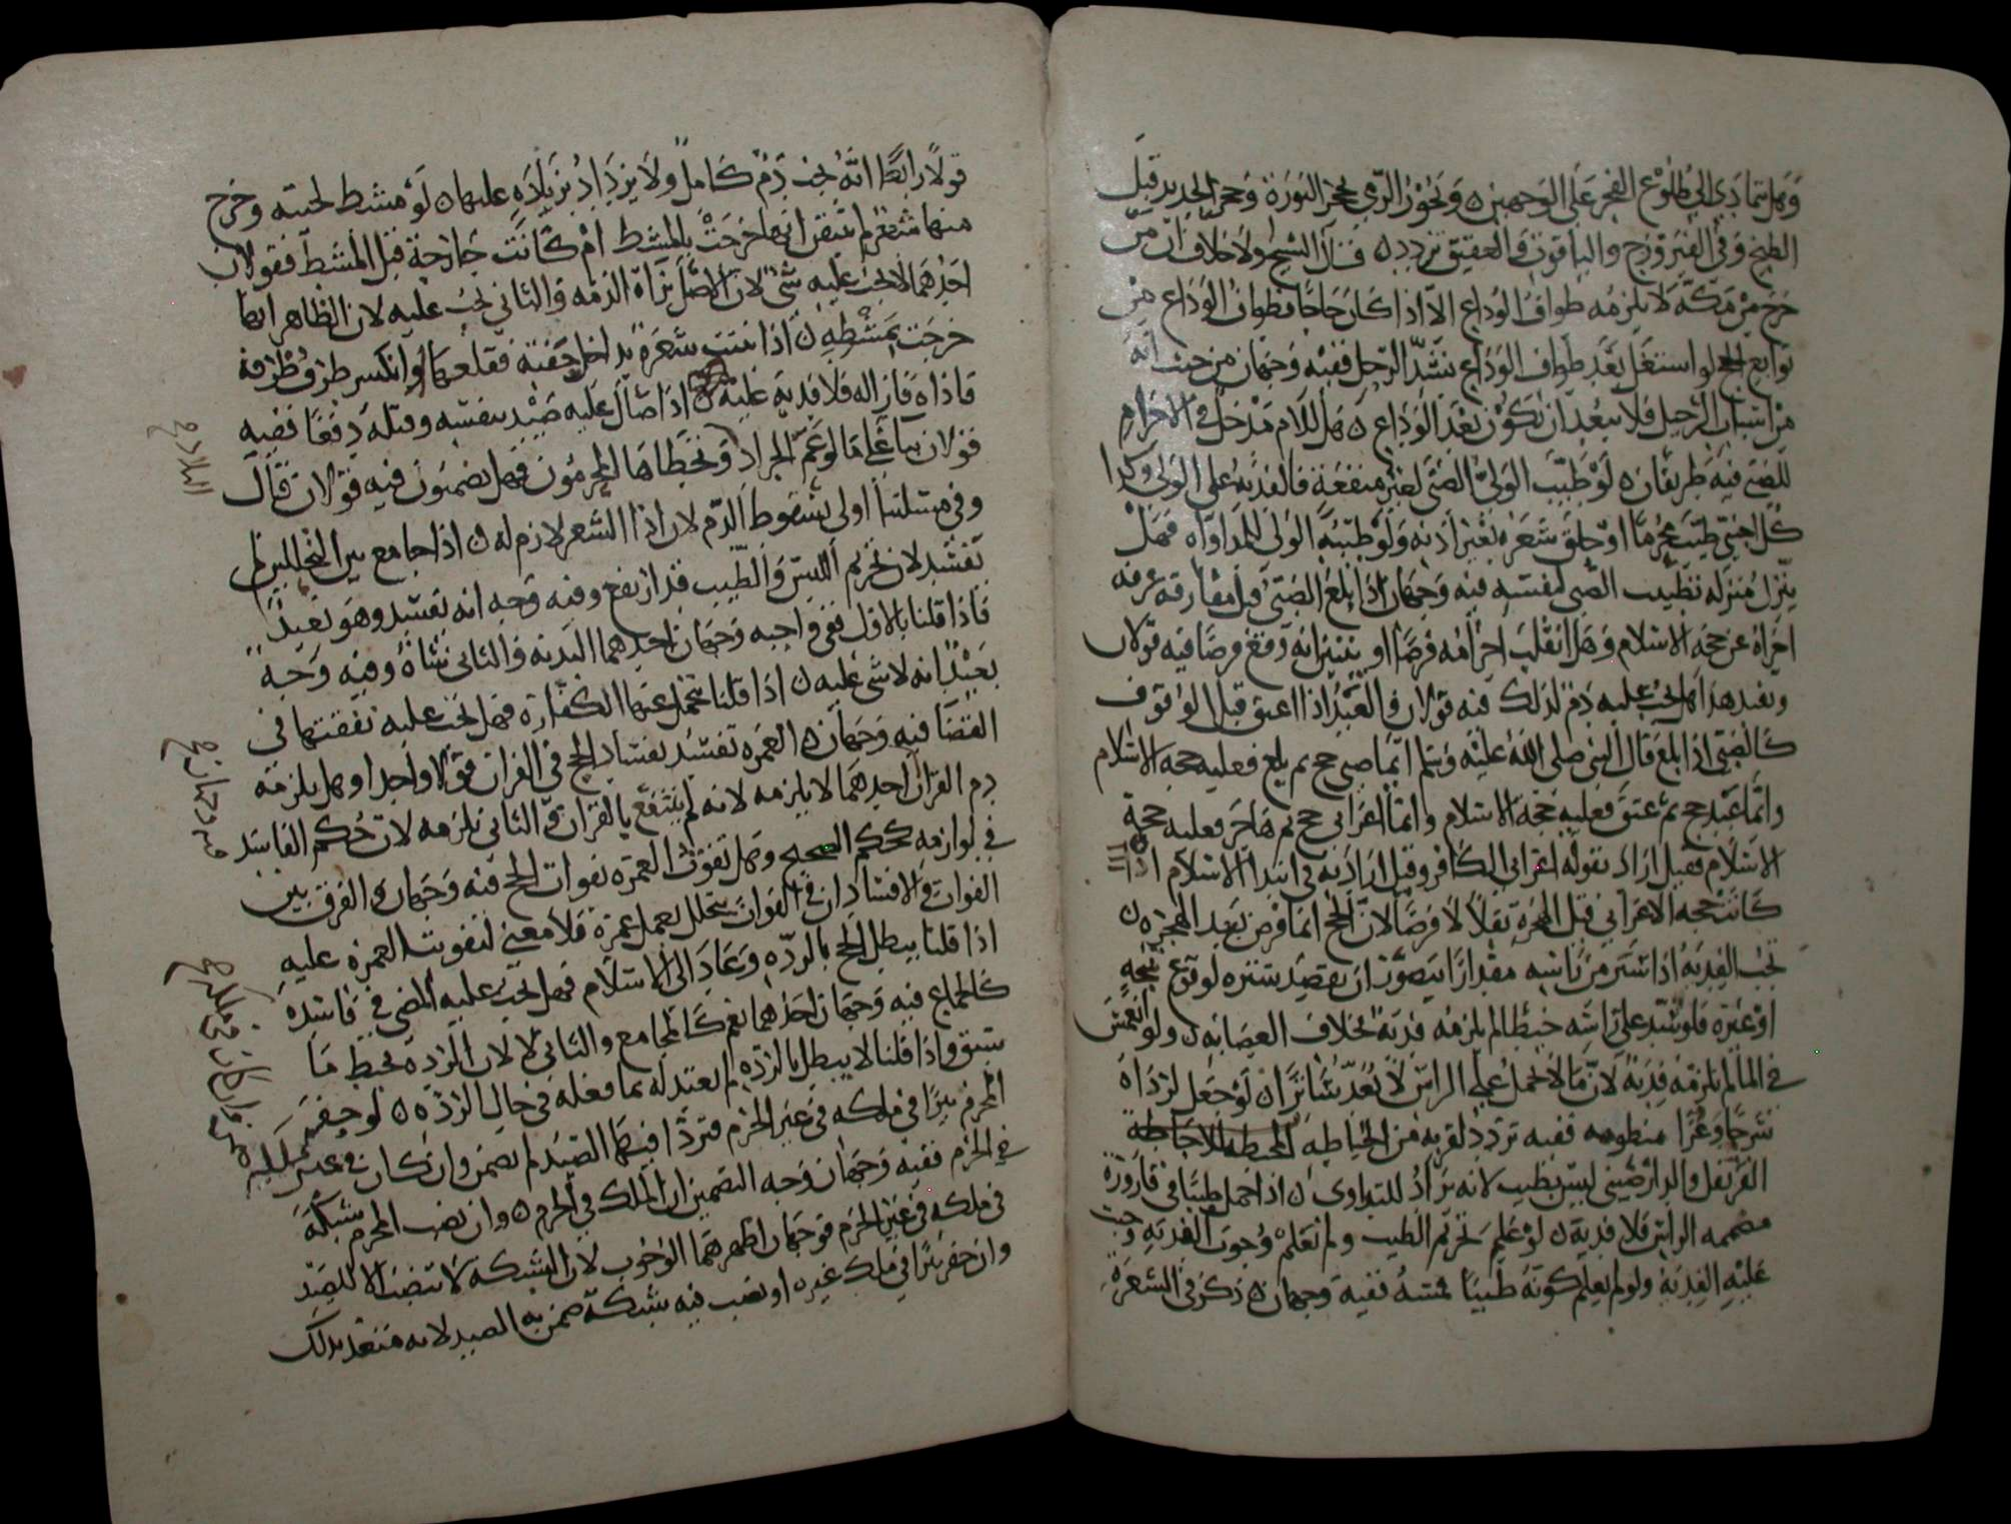 وهل يتمادى الى طلوع الفجر على الوجهين ٥ ويجوز الرمي بحجر النورة وحجر الحديد قبل
الطبخ وفي الفيروزج والياقوت والعقيق تردد ٥ قال الشيخ ولا خلاف ان من
خرج من مكة لا يلزمه طواف الوداع الا اذا كان حاجا فطواف الوداع من
توابع الحج لو اشتغل بعد طواف الوداع بشد الرحل ففيه وجهان من حيث انه
من اسباب الرحيل فلا يبعد ان يكون بعد الوداع ٥ هل للام مدخل في الاحرام
للصبي فيه طريقان ٥ لو طيب الولي الصبي لغير منفعة فالفدية على الولي وكذا
كل اجنبي طيب محرما او حلق شعره بغير اذنه ولو طيبه الولي للمداواة فهل
ينزل منزلة تطييب الصبي لنفسه فيه وجهان اذا بلغ الصبي قبل مفارقة عرفة
اجزاه عن حجة الاسلام وهل انقلب احرامه فرضا او يتبين انه وقع فرضا فيه قولان
وبعد هذا هل يجب عليه دم لذلك فيه قولان والعبد اذا اعتق قبل الوقوف
كالصبي اذا بلغ قال النبي صلى الله عليه وسلم ايما صبي حج ثم بلغ فعليه حجة الاسلام
وايما عبد حج ثم عتق فعليه حجة الاسلام وايما اعرابي حج ثم هاجر فعليه حجة
الاسلام فقيل اراد بقوله اعرابي الكافر وقيل اراد به في ابتدا الاسلام اذا
كانت حجة الاعرابي قبل الهجرة نفلا لا فرضا لان الحج انما فرض بعد الهجرة ٥
تجب الفدية اذا ستر من راسه مقدارا يتصور ان يقصد ستره لوقوع شجة
او غيره فلو شد على راسه خيطا لم يلزمه فدية بخلاف العصابة ٥ ولو انغمس
في الما لم يلزمه فدية لان ما لا يحمل على الراس لا يعد ساترا ٥ لو جعل لرداه
شرجا وعرا منظومة ففيه تردد لقربه من الخياطة المحيطة للاحاطة
القرنفل والدارصيني ليس بطيب لانه يراد للتداوي ٥ اذا حمل طيبا في قارورة
مصممة الراس فلا فدية ٥ لو علم تحريم الطيب ولم يعلم وجوب الفدية وجبت
عليه الفدية ولو لم يعلم كونه طيبا فمسه ففيه وجهان ٥ ذكر في الشعرة
قولا رابعا انه يجب دم كامل ولا يزداد بزيادة عليها ٥ لو مشط لحيته وخرج
منها شعر لم يتيقن انها خرجت بالمشط ام كانت خارجة قبل المشط فقولان
احدهما لا يجب عليه شي لان الاصل براة الذمة والثاني يجب عليه لان الظاهر انها
خرجت بمشطه ٥ اذا نبتت شعرة بداخل جفنه فقلعها او انكسر طرف ظفره
فاذاه فازاله فلا فدية عليه ٥ اذا صال عليه صيد بنفسه وقتله دفعا ففيه
قولان بنا على ما لو عم الجراد وتخطاها المحرمون فهل يضمنون فيه قولان قال
وفي مسلتنا اولى بسقوط الدم لان اذا الشعر لازم له ٥ اذا جامع بين التحللين لم
تفسد لان تحريم اللبس والطيب قد ارتفع وفيه وجه انه يفسد وهو بعيد
فاذا قلنا بالاول ففي واجبه وجهان احدهما البدنة والثاني شاة وفيه وجه
بعيد انه لا شي عليه ٥ اذا قلنا يتحمل عنها الكفارة فهل يجب عليه نفقتها في
القضا فيه وجهان ٥ العمرة تفسد بفساد الحج في القران قولا واحدا وهل يلزمه
دم القران احدهما لا يلزمه لانه لم ينتفع بالقران والثاني يلزمه لان حكم الفاسد
في لوازمه كحكم الصحيح وهل تفوت العمرة بفوات الحج فيه وجهان والفرق بين
الفوات والافساد ان في الفوات يتحلل بعمل عمرة فلا معنى لتفويت العمرة عليه
اذا قلنا يبطل الحج بالردة وعاد الى الاسلام فهل يجب عليه المضي في فاسده
كالجماع فيه وجهان احدهما نعم كالمجامع والثاني لا لان الردة تحبط ما
سبق واذا قلنا لا يبطل بالردة لم يعتد له بما فعله في حال الردة ٥ لو حفر
المحرم بيرا في ملكه في غير الحرم فتردا فيها الصيد لم يضمن وان كان في غير ملكه
في الحرم ففيه وجهان وجه التضمين ان الملك في الحرم ٥ وان نصب المحرم شبكة
في ملكه في غير الحرم فوجهان اظهرهما الوجوب لان الشبكة لا تنصب الا للصيد
وان حفر بيرا في ملك غيره او نصب فيه شبكة ضمن به الصيد لانه متعد بذلك